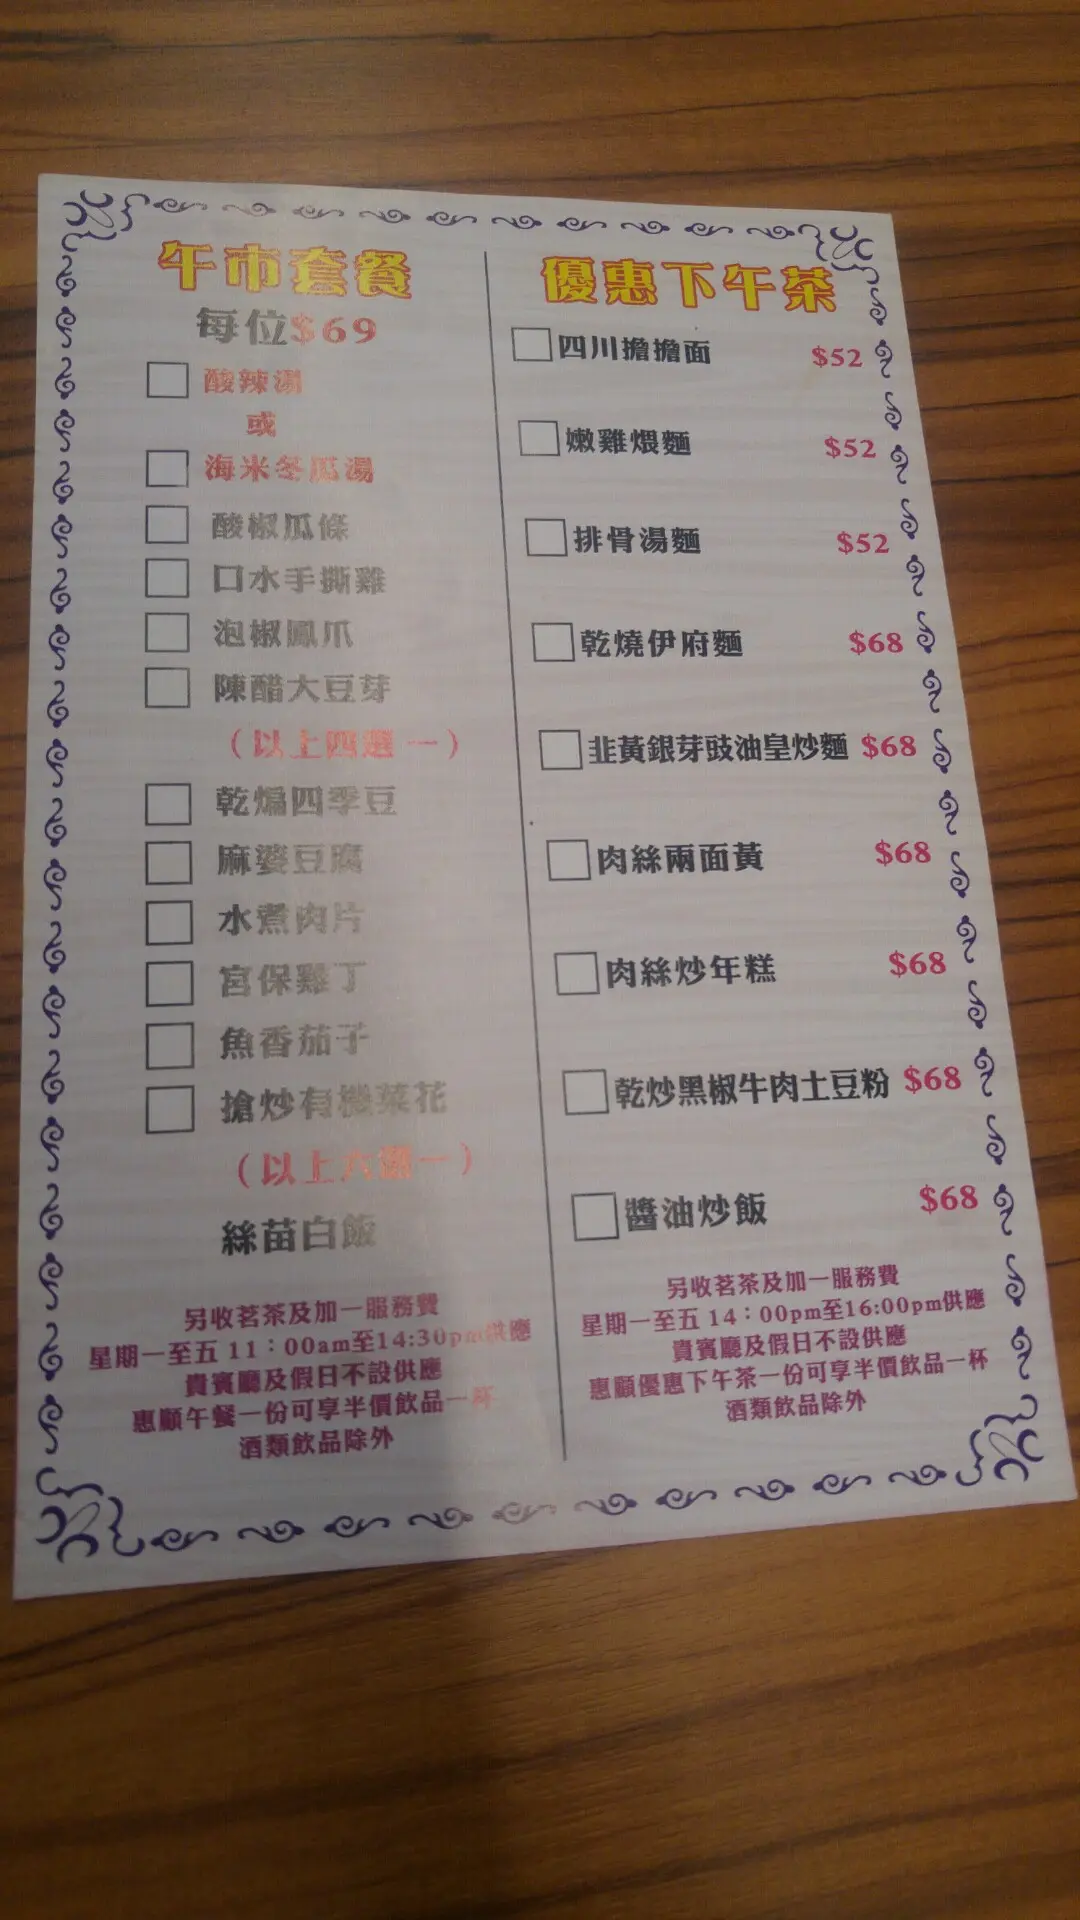 午市套餐
每位$69
酸辣湯
或
海米冬瓜湯
酸椒瓜條
口水手撕雞
泡椒鳳爪
陳醋大豆芽
（以上四選一）
乾煸四季豆
麻婆豆腐
水煮肉片
宮保雞丁
魚香茄子
搶炒有機菜花
（以上六選一）
絲苗白飯
另收茗茶及加一服務費
星期一至五 11：00am至14:30pm供應
貴賓廳及假日不設供應
惠顧午餐一份可享半價飲品一杯
酒類飲品除外
優惠下午茶
四川擔擔面 $52
嫩雞煨麵 $52
排骨湯麵 $52
乾燒伊府麵 $68
韭黃銀芽豉油皇炒麵 $68
肉絲兩面黃 $68
肉絲炒年糕 $68
乾炒黑椒牛肉土豆粉 $68
醬油炒飯 $68
另收茗茶及加一服務費
星期一至五 14：00pm至16:00pm供應
貴賓廳及假日不設供應
惠顧優惠下午茶一份可享半價飲品一杯
酒類飲品除外